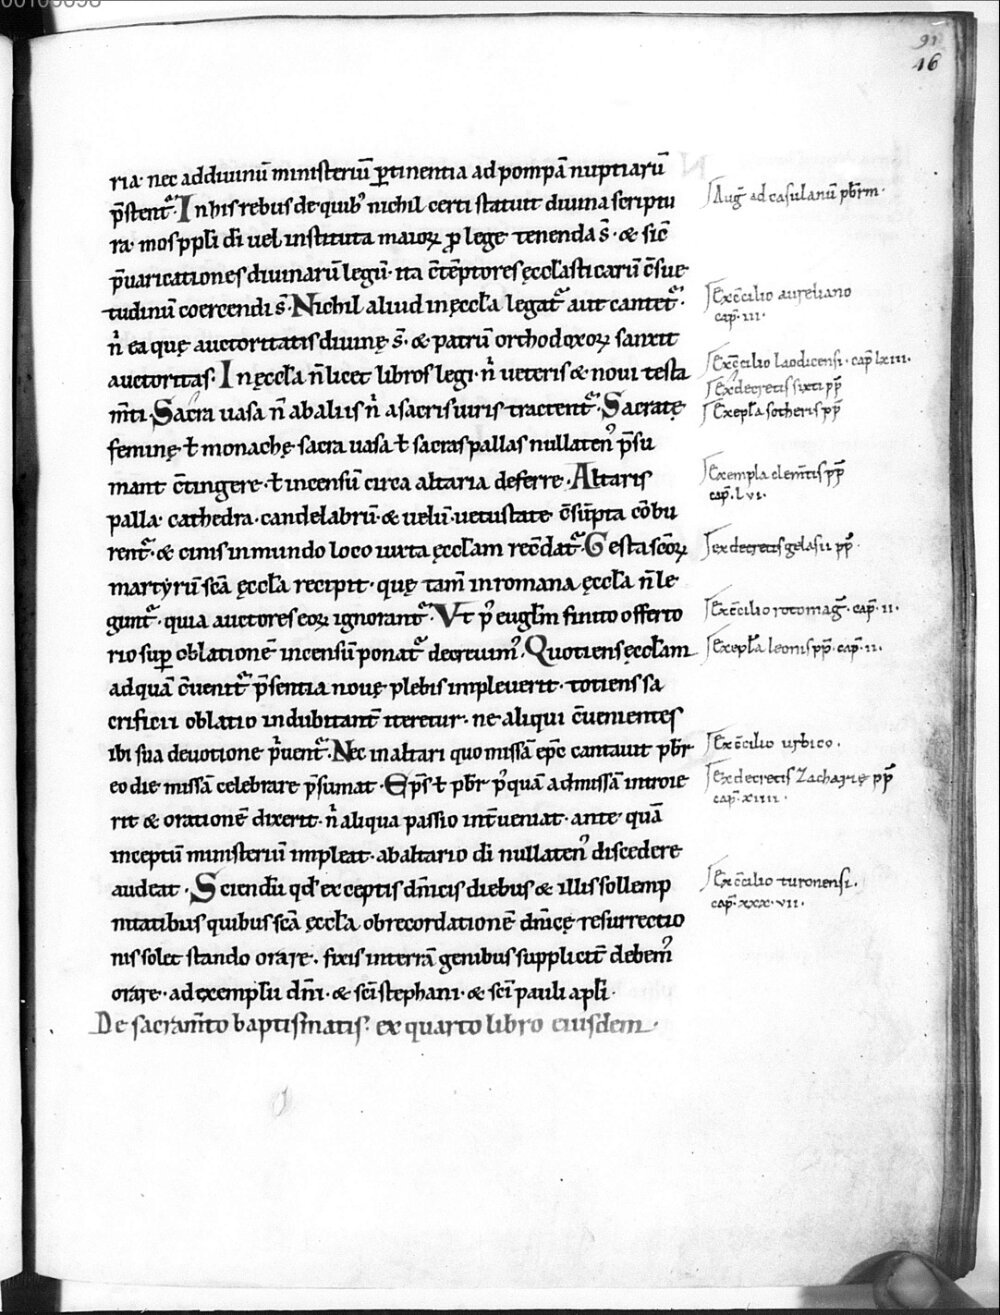 00100098
91
16
ria· nec ad diuinū ministeriū ꝑtinentia ad pompā nuptiarū
p̄stent᷑· In his rebus de quib; nichil certi statuit diuina scriptu
ra· mos ppłi di uel instituta maioꝝ ꝓ lege tenenda s̄· & sic̄
p̄uaricationes diuinarū legū· ita c̄tēptores ęccłasticarū c̄sue
tudinū coercendi s̄· Nichil aliud in ęccła legat᷑ aut cantet᷑·
n̄ ea quę auctoritatis diuinę s̄· & patrū orthodoxoꝝ sanxit
auctoritas· In ęccła n̄ licet libros legi· n̄ ueteris & noui testa
m̄ti· Sacra uasa n̄ ab aliis n̄ a sacris uiris tractent᷑· Sacratę
feminę· ł monachę sacra uasa ł sacras pallas nullaten᷒ p̄su
mant c̄tingere· ł incensū circa altaria deferre· Altaris
palla· cathedra· candelabrū· & uelū· uetustate c̄sūpta cōbu
rent᷑· & cinis in mundo loco iuxta ęccłam rec̄dat᷑· Gesta sc̄oꝝ
martyrū sc̄a ęccła recipit· quę tam̄ in romana ęccła n̄ le
gunt᷑· quia auctores eoꝝ ignorant᷑· Vt p᷒ euglm̄ finito offerto
rio suꝑ oblationē incensū ponat᷑ decreuim᷒· Quotiens ęccłam
ad quā c̄uenit᷑ p̄sentia nouę plebis impleuerit· totiens sa
crificii oblatio indubitant̄ iteretur· ne aliqui c̄uenientes
ibi sua deuotione p̄uent᷑· Nec in altari quo missā ep̄c cantauit p̄br
eo die missā celebrare p̄sumat· Ep̄s ł p̄br p᷒quā ad missā introie
rit & orationē dixerit· n̄ aliqua passio int̄ueniat· ante quā
inceptū ministeriū impleat· ab altario di nullaten᷒ discedere
audeat· Sciendū qd̄ exceptis dn̄icis diebus & illis sollemp
nitatibus quibus sc̄a ęccła ob recordationē dn̄icę resurrectio
nis solet stando orare· fixis in terrā genibus supplicit̄ debem᷒
orare· ad exemplū dn̄i· & sc̄i stephani· & sc̄i pauli apłi·
De sacram̄to baptismatis· ex quarto libro eiusdem·
Aug᷑ ad casulanū p̄brm·
Ex c̄cilio aureliano
cap̄· iii·
Ex c̄cilio laodicensi· cap̄ lxiii·
Ex decretis sixti pp̄
Ex epła sotheris pp̄
Ex empla clem̄tis pp̄
cap̄· lvi·
ex decretis gelasii pp̄·
Ex c̄cilio rotomag᷑· cap̄· ii·
Ex epła leonis pp̄· cap̄· ii·
Ex c̄cilio urbico·
Ex decretis Zacharię pp̄
cap̄· xiiii·
Ex c̄cilio turonensi·
cap̄· xxx·vii·